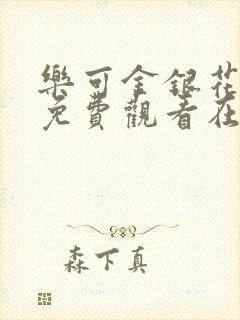 樂可金銀花
免費觀看在
森下真